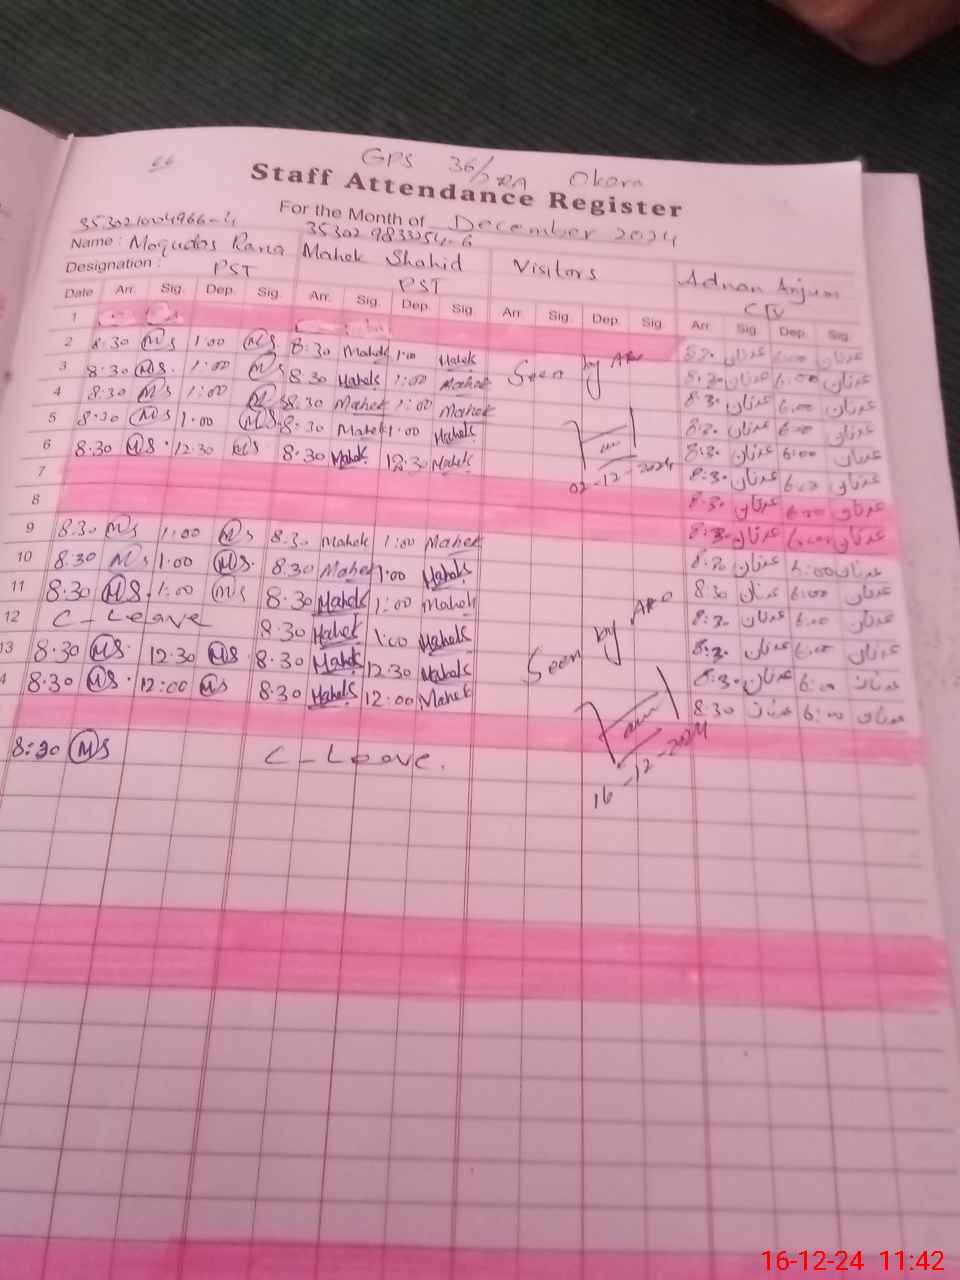 GPS 36/ Okara
Staff Attendance Register
For the Month of December 2024
Name : Moqudas Rana Mahek Shahid Visitors Adnan Anjum
Designation : PST PST
Date Arr. Sig. Dep. Sig. Arr. Sig. Dep. Sig. Arr Sig. Dep. Sig Arr Sig. Dep. Sig
1
2 8:30 Ms 1:00 Ms 8:30 Mahek 1:00 Mahek 6:00 عدنان
3 8:30 Ms. 1:00 Ms 8:30 Mahek 1:00 Mahek Seen by 8:30 عدنان 6:00 عدنان
4 8:30 Ms 1:00 Ms 8:30 Mahek 1:00 Mahek 8:30 عدنان 6:00 عدنان
5 8:30 Ms 1:00 Ms. 8:30 Mahek 1:00 Mahek 8:30 عدنان 6:00 عدنان
6 8:30 Ms. 12:30 Ms. 8:30 Mahek 12:30 Mahek 02-12-2024 8:30 عدنان 6:00 عدنان
7 8:30 عدنان 6:00 عدنان
8 8:30 عدنان 6:00 عدنان
9 8:30 Ms 1:00 Ms 8:30 Mahek 1:00 Mahek 8:30 عدنان 6:00 عدنان
10 8:30 Ms 1:00 Ms. 8:30 Mahek 1:00 Mahek 8:30 عدنان 6:00 عدنان
11 8:30 Ms. 1:00 Ms 8:30 Mahek 1:00 Mahek 8:30 عدنان 6:00 عدنان
12 C-Leave 8:30 Mahek 1:00 Mahek Seen by 8:30 عدنان 6:00 عدنان
13 8:30 Ms. 12:30 Ms 8:30 Mahek 12:30 Mahek 8:30 عدنان 6:00 عدنان
4 8:30 Ms. 12:00 Ms 8:30 Mahek 12:00 Mahek 8:30 عدنان 6:00 عدنان
8:30 Ms C-Leave.
16-12-2024
16-12-24 11:42